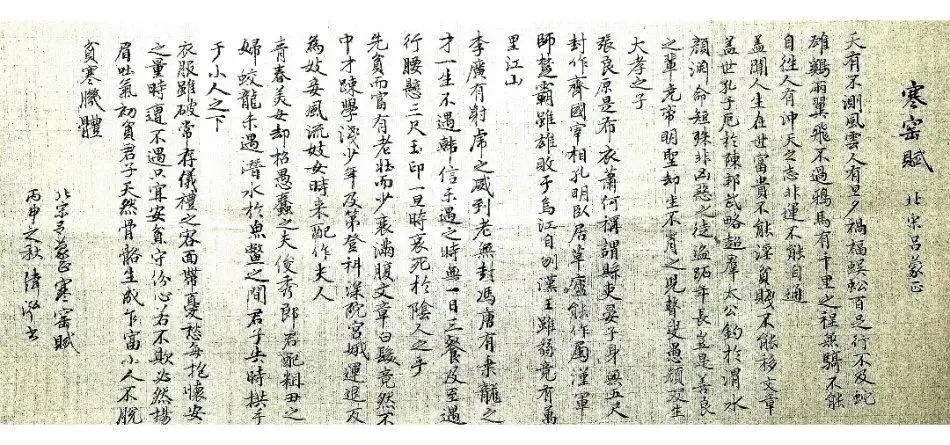 寒窑賦 北宋吕蒙正
天有不測風雲人有旦夕禍福蜈蚣百足行不及蛇
雄鷄兩翼飛不過鴉馬有千里之程無騎不能
自往人有冲天之志非運不能自通
盖聞人生在世富貴不能淫貧賤不能移文章
盖世孔子厄於陳邦武略超羣太公釣於渭水
顏淵命短殊非凶惡之徒盗跖年長豈是善良
之輩堯帝明聖却生不肖之兒瞽叟愚頑反生
大孝之子
張良原是布衣蕭何稱謂縣吏晏子身無五尺
封作齊國宰相孔明臥居草廬能作蜀漢軍
師楚霸雖雄敗于烏江自刎漢王雖弱竟有萬
里江山
李廣有射虎之威到老無封馮唐有乘龍之
才一生不遇韓信未遇之時無一日三餐及至遇
行腰懸三尺玉印一旦時衰死於陰人之手
先貧而富有老壯而少衰滿腹文章白髮竟然不
中才疎學淺少年及第登科深院宮娥運退反
為妓妾風流妓女時来配作夫人
青春美女却招愚蠢之夫俊秀郎君配粗丑之
婦蛟龍未遇潜水於魚鱉之間君子失時拱手
于小人之下
衣服雖破常存儀禮之容面帶憂愁每抱懷安
之量時遭不遇只宜安貧守份心若不欺必然揚
眉吐氣初貧君子天然骨骼生成乍富小人不脱
貧寒肌體
北宋吕蒙正寒窑賦
丙申之秋 書